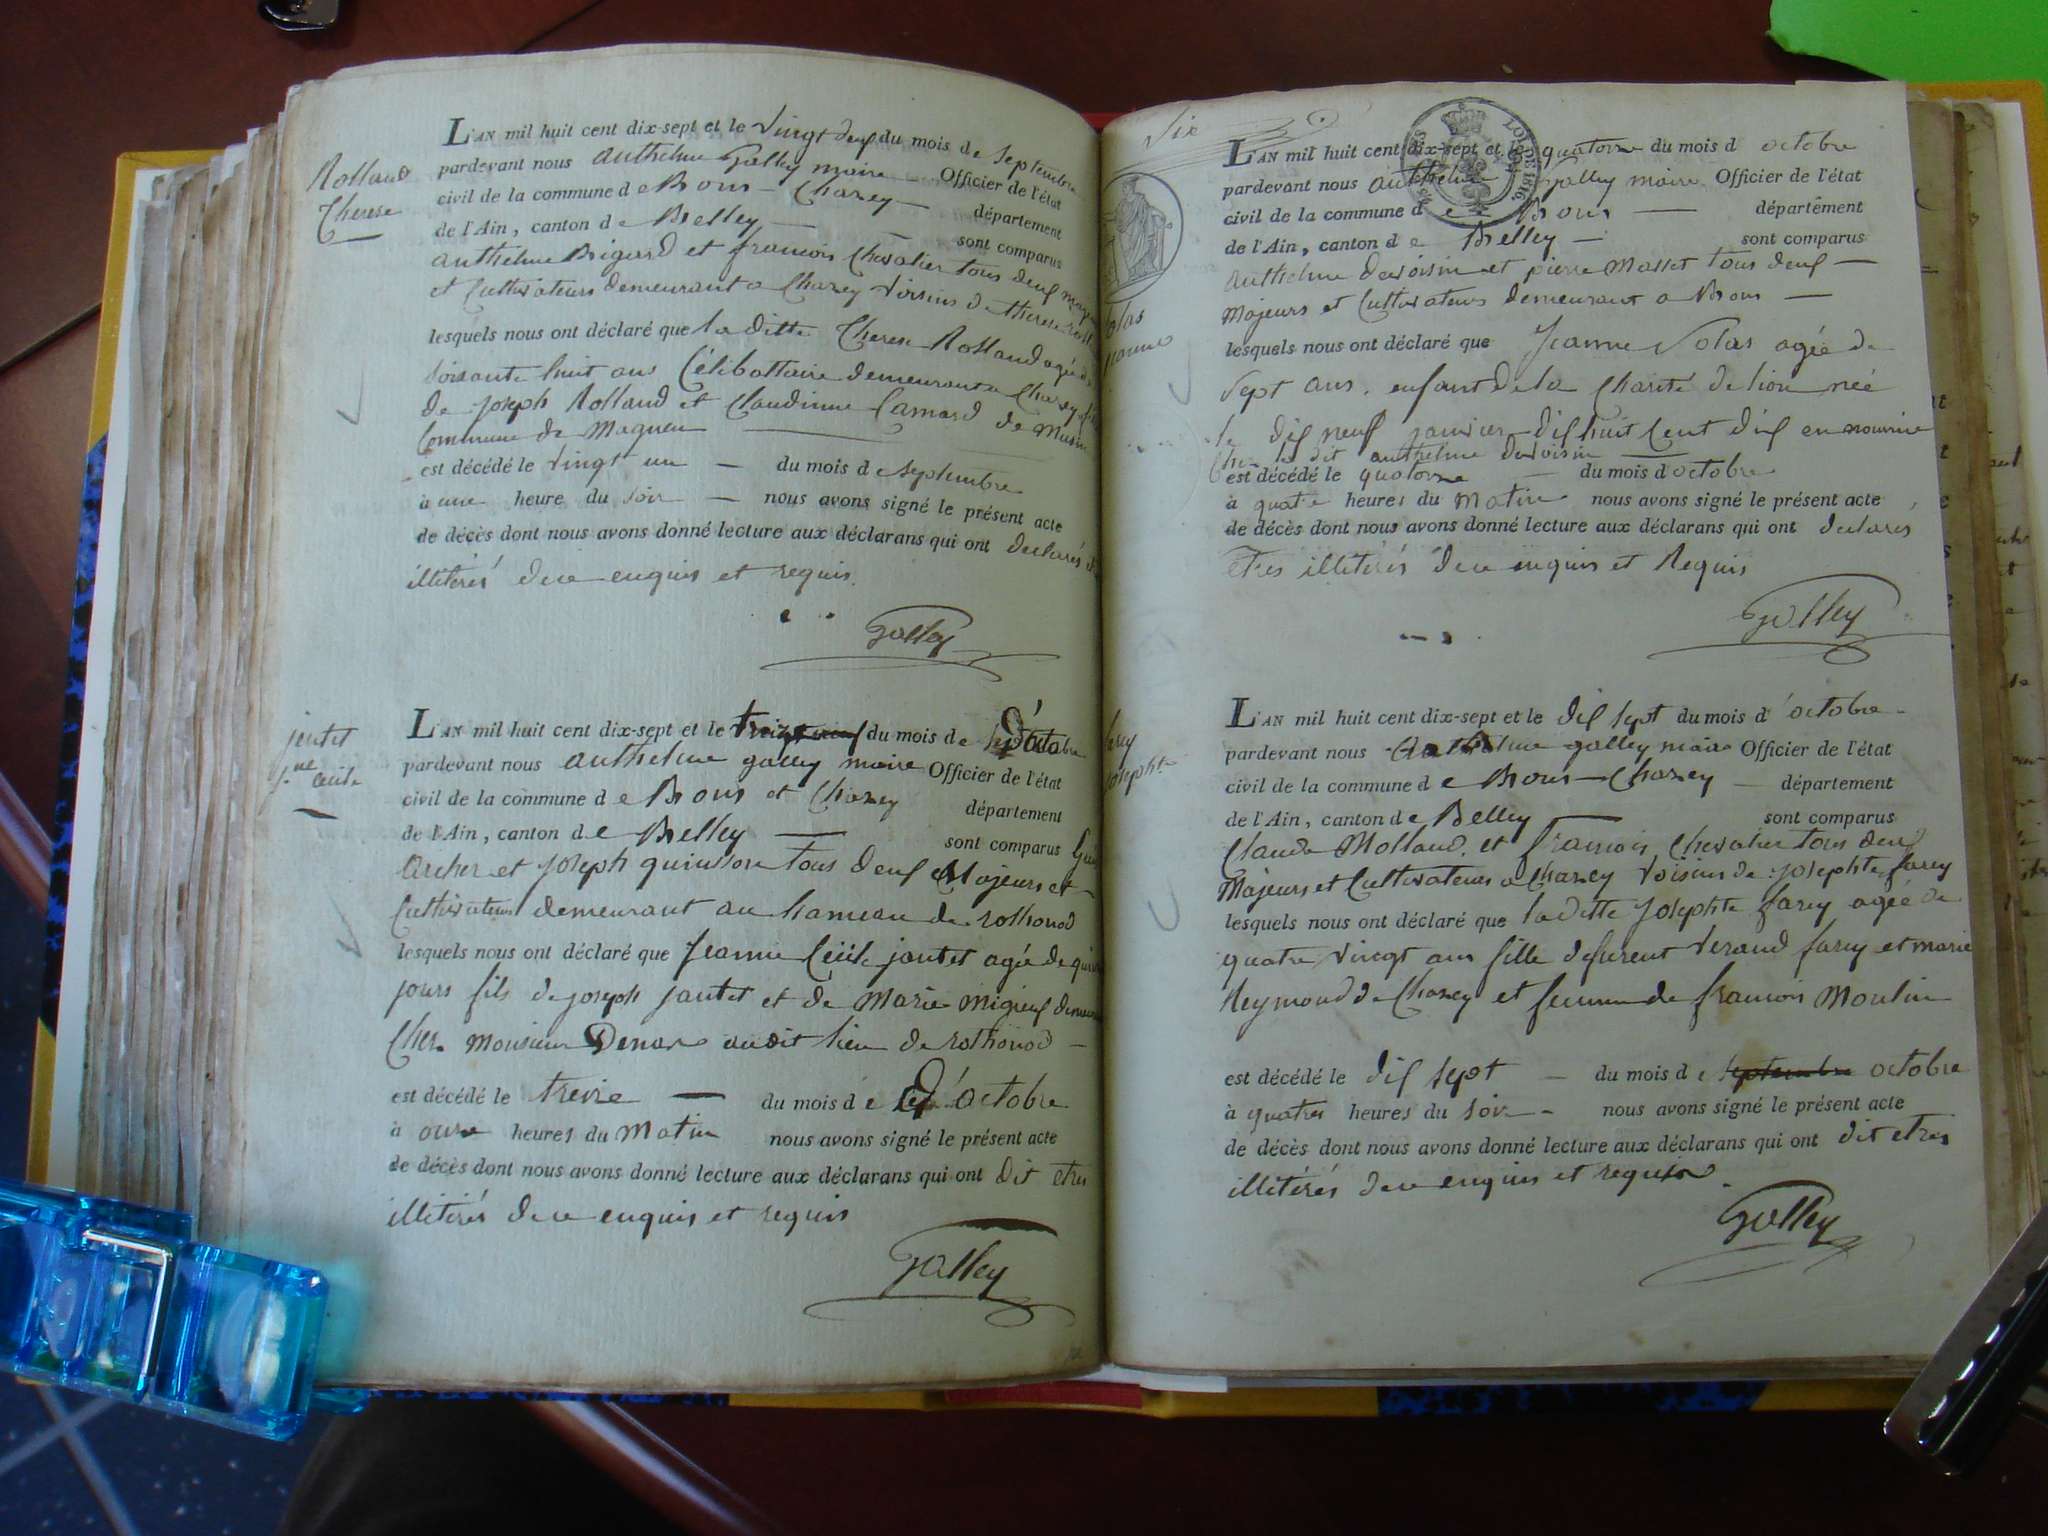 Rolland
Therese
L'AN mil huit cent dix-sept et le vingt deux du mois de septembre
pardevant nous anthelme Galley maire Officier de l'état
civil de la commune de Bons - Chazey département
de l'Ain, canton de Belley sont comparus
anthelme Brigard et francois Chevalier tous deux
et Cultivateurs demeurant a Chazey voisins de therese
lesquels nous ont déclaré que la ditte Therese Rolland agée de
soixante huit ans Célibattaire demeurant a Chazey
de joseph Rolland et Claudinne Camard de
Commune de Magneu
est décédé le vingt un du mois de septembre
à une heure du soir nous avons signé le présent acte
de décès dont nous avons donné lecture aux déclarans qui ont declarés
illiterés de ce enquis et requis.
Galley
jentet
j.ne Cecile
L'AN mil huit cent dix-sept et le treize du mois d'octobre
pardevant nous anthelme galley maire Officier de l'état
civil de la commune de Bons et Chazey département
de l'Ain, canton de Belley sont comparus
Archer et joseph quinson tous deux Majeurs et
Cultivateurs demeurant au hameau de rothonod
lesquels nous ont déclaré que jeanne Cécile jantet agée de
jours fils de joseph jantet et de Marie migieux
Chez monsieur au dit lieu de rothonod
est décédé le treize du mois d'octobre
à onze heures du matin nous avons signé le présent acte
de décès dont nous avons donné lecture aux déclarans qui ont dit etres
illitérés de ce enquis et requis
Galley
Six
LOI DE 1816
L'AN mil huit cent dix-sept et le quatorze du mois d octobre
pardevant nous anthelme galley maire Officier de l'état
civil de la commune de Bons département
de l'Ain, canton de Belley sont comparus
anthelme devoisin et pierre Masset tous deux
Majeurs et Cultivateurs demeurant a Bons
lesquels nous ont déclaré que Jeanne Solas agée de
sept ans. enfant de la Charité de lion née
le dix neuf janvier dix huit Cent dix en nourrice
Chez le dit anthelme devoisin
est décédé le quatorze du mois d'octobre
à quatre heures du matin nous avons signé le présent acte
de décès dont nous avons donné lecture aux déclarans qui ont declarés
etres illitérés de ce enquis et Requis
Galley
L'AN mil huit cent dix-sept et le dix sept du mois d'octobre
pardevant nous Anthelme galley maire Officier de l'état
civil de la commune de Bons - Chazey département
de l'Ain, canton de Belley sont comparus
Claude Molland et francois Chevalier tous deux
Majeurs et Cultivateurs a Chazey voisins de josephte farcy
lesquels nous ont déclaré que la ditte josephte farcy agée de
quatre vingt ans fille de furent Verand farcy et marie
Reymond de Chazey et femme de francois Moulin
est décédé le dix sept du mois de septembre octobre
à quatres heures du soir nous avons signé le présent acte
de décès dont nous avons donné lecture aux déclarans qui ont dit etres
illitérés de ce enquis et requis.
Galley